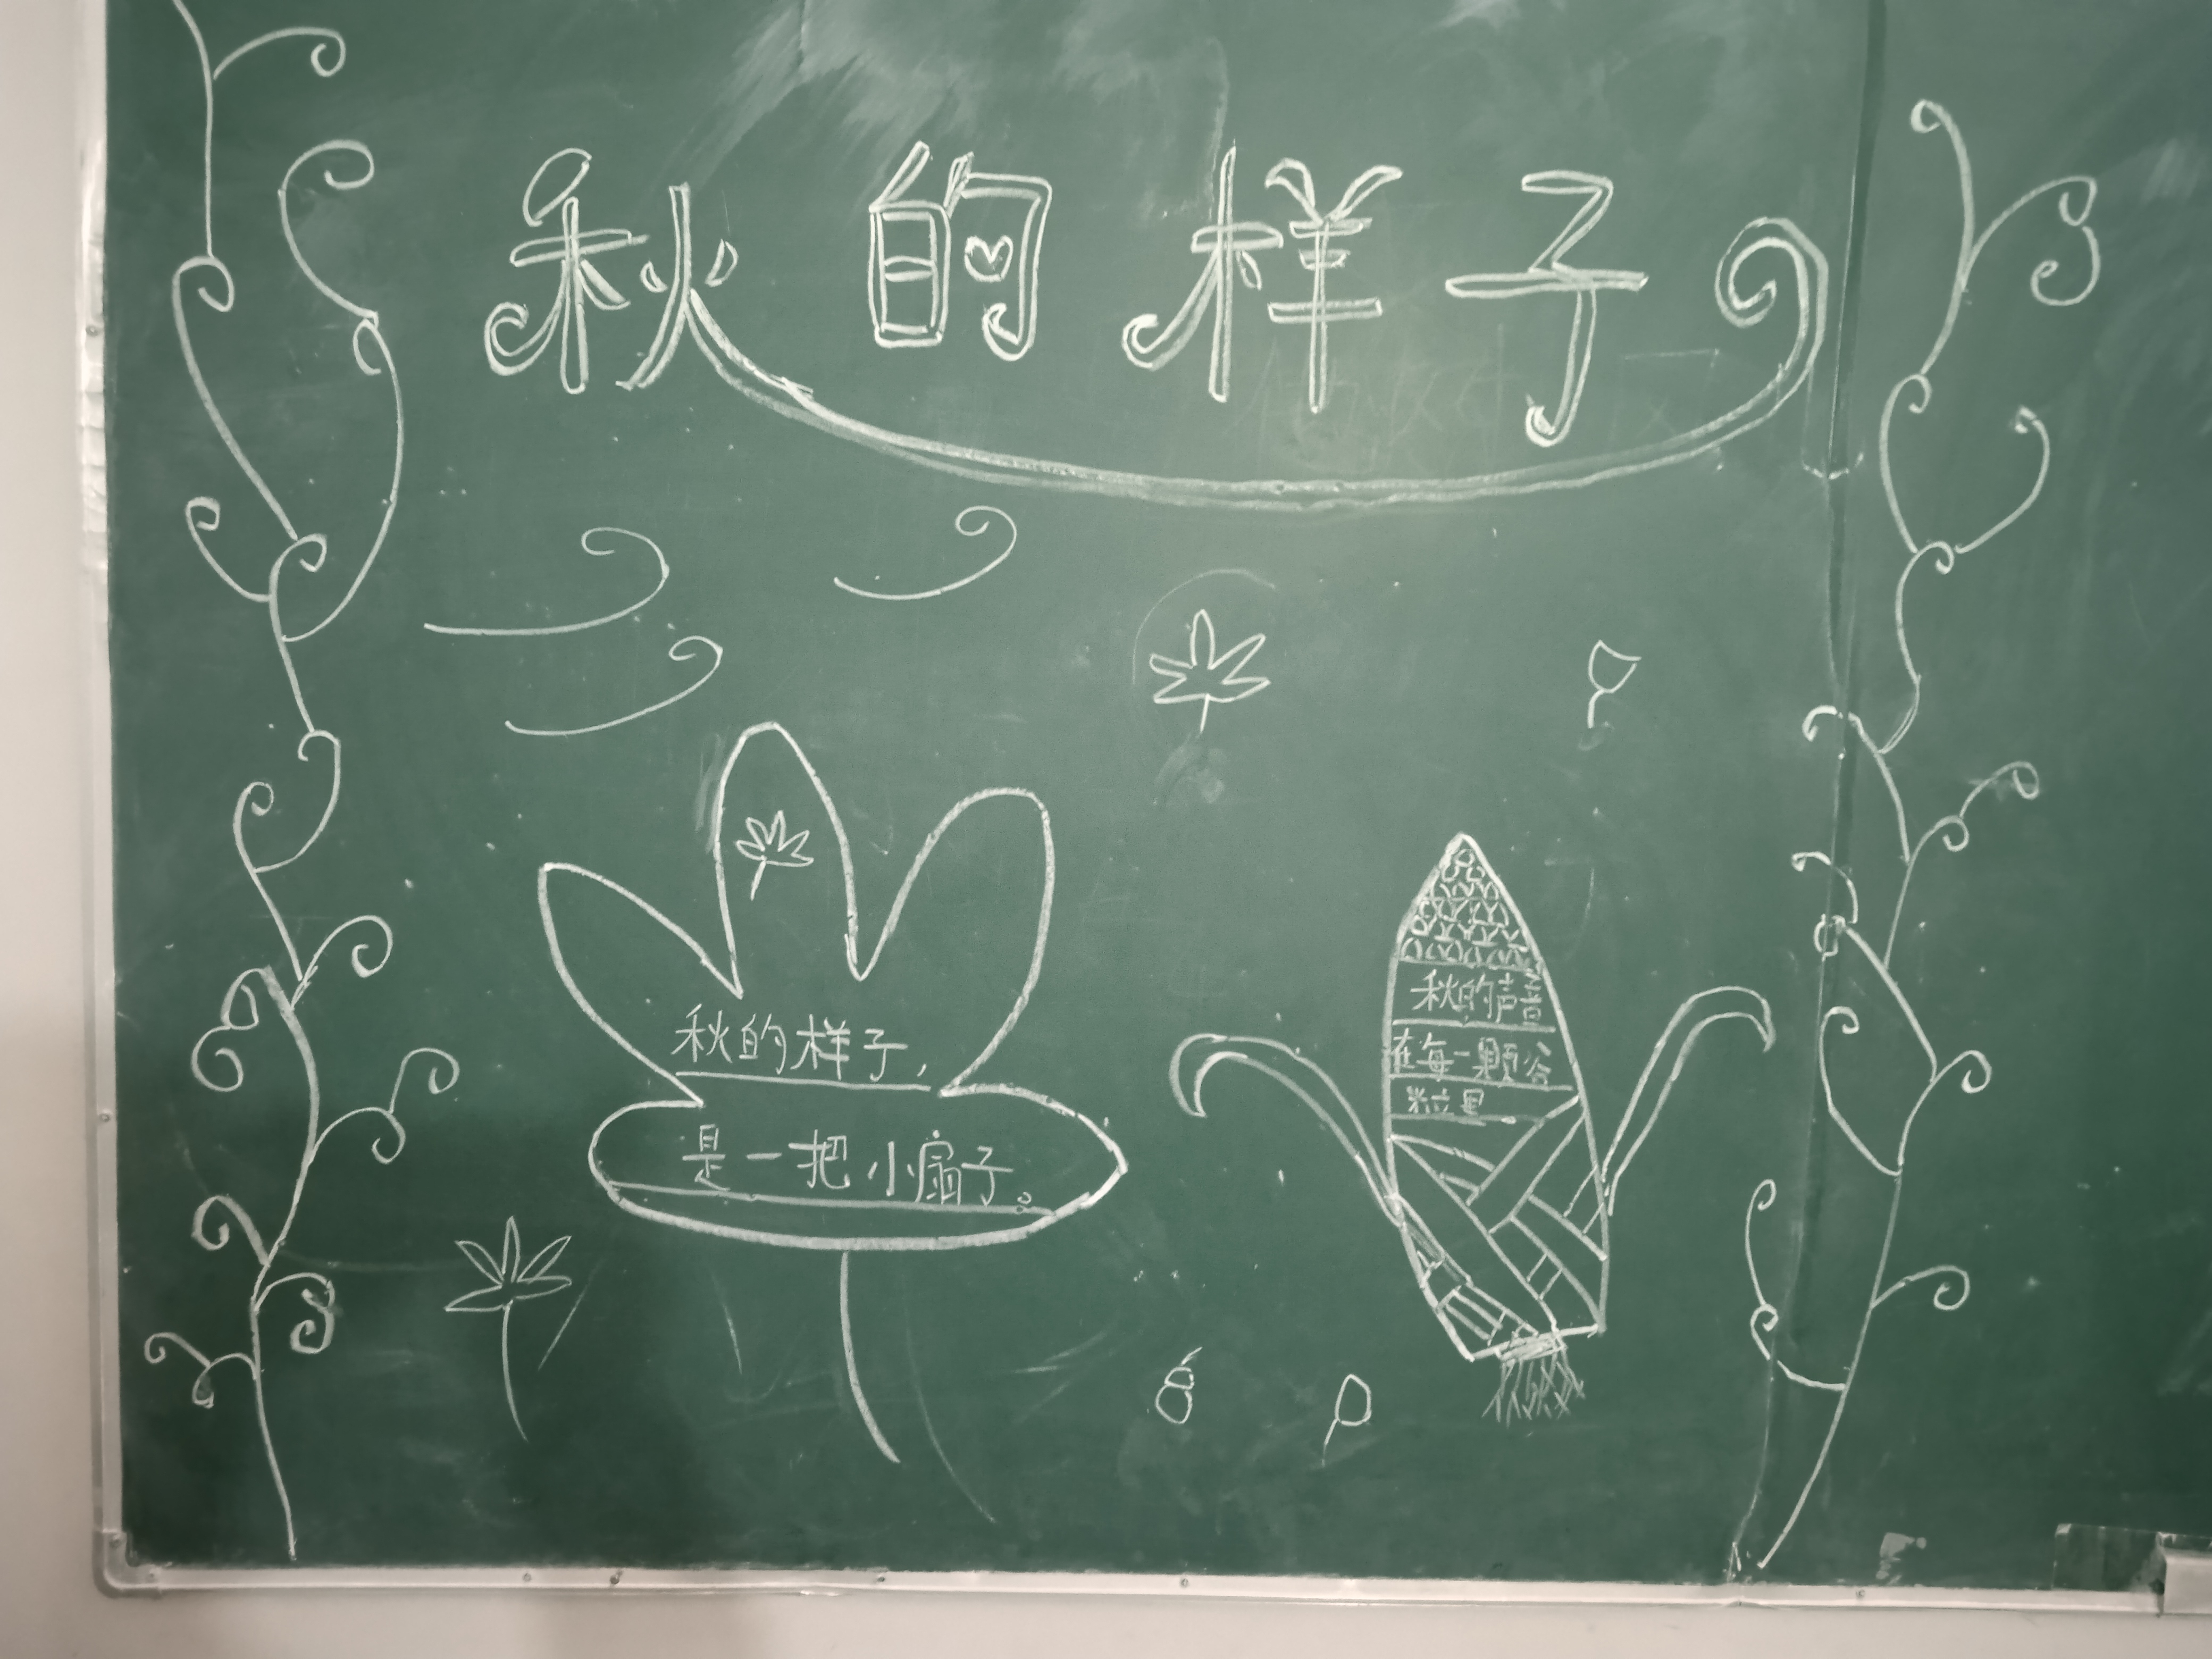 秋的样子
秋的样子，
是一把小扇子。
秋的声音
在每一颗谷
粒里